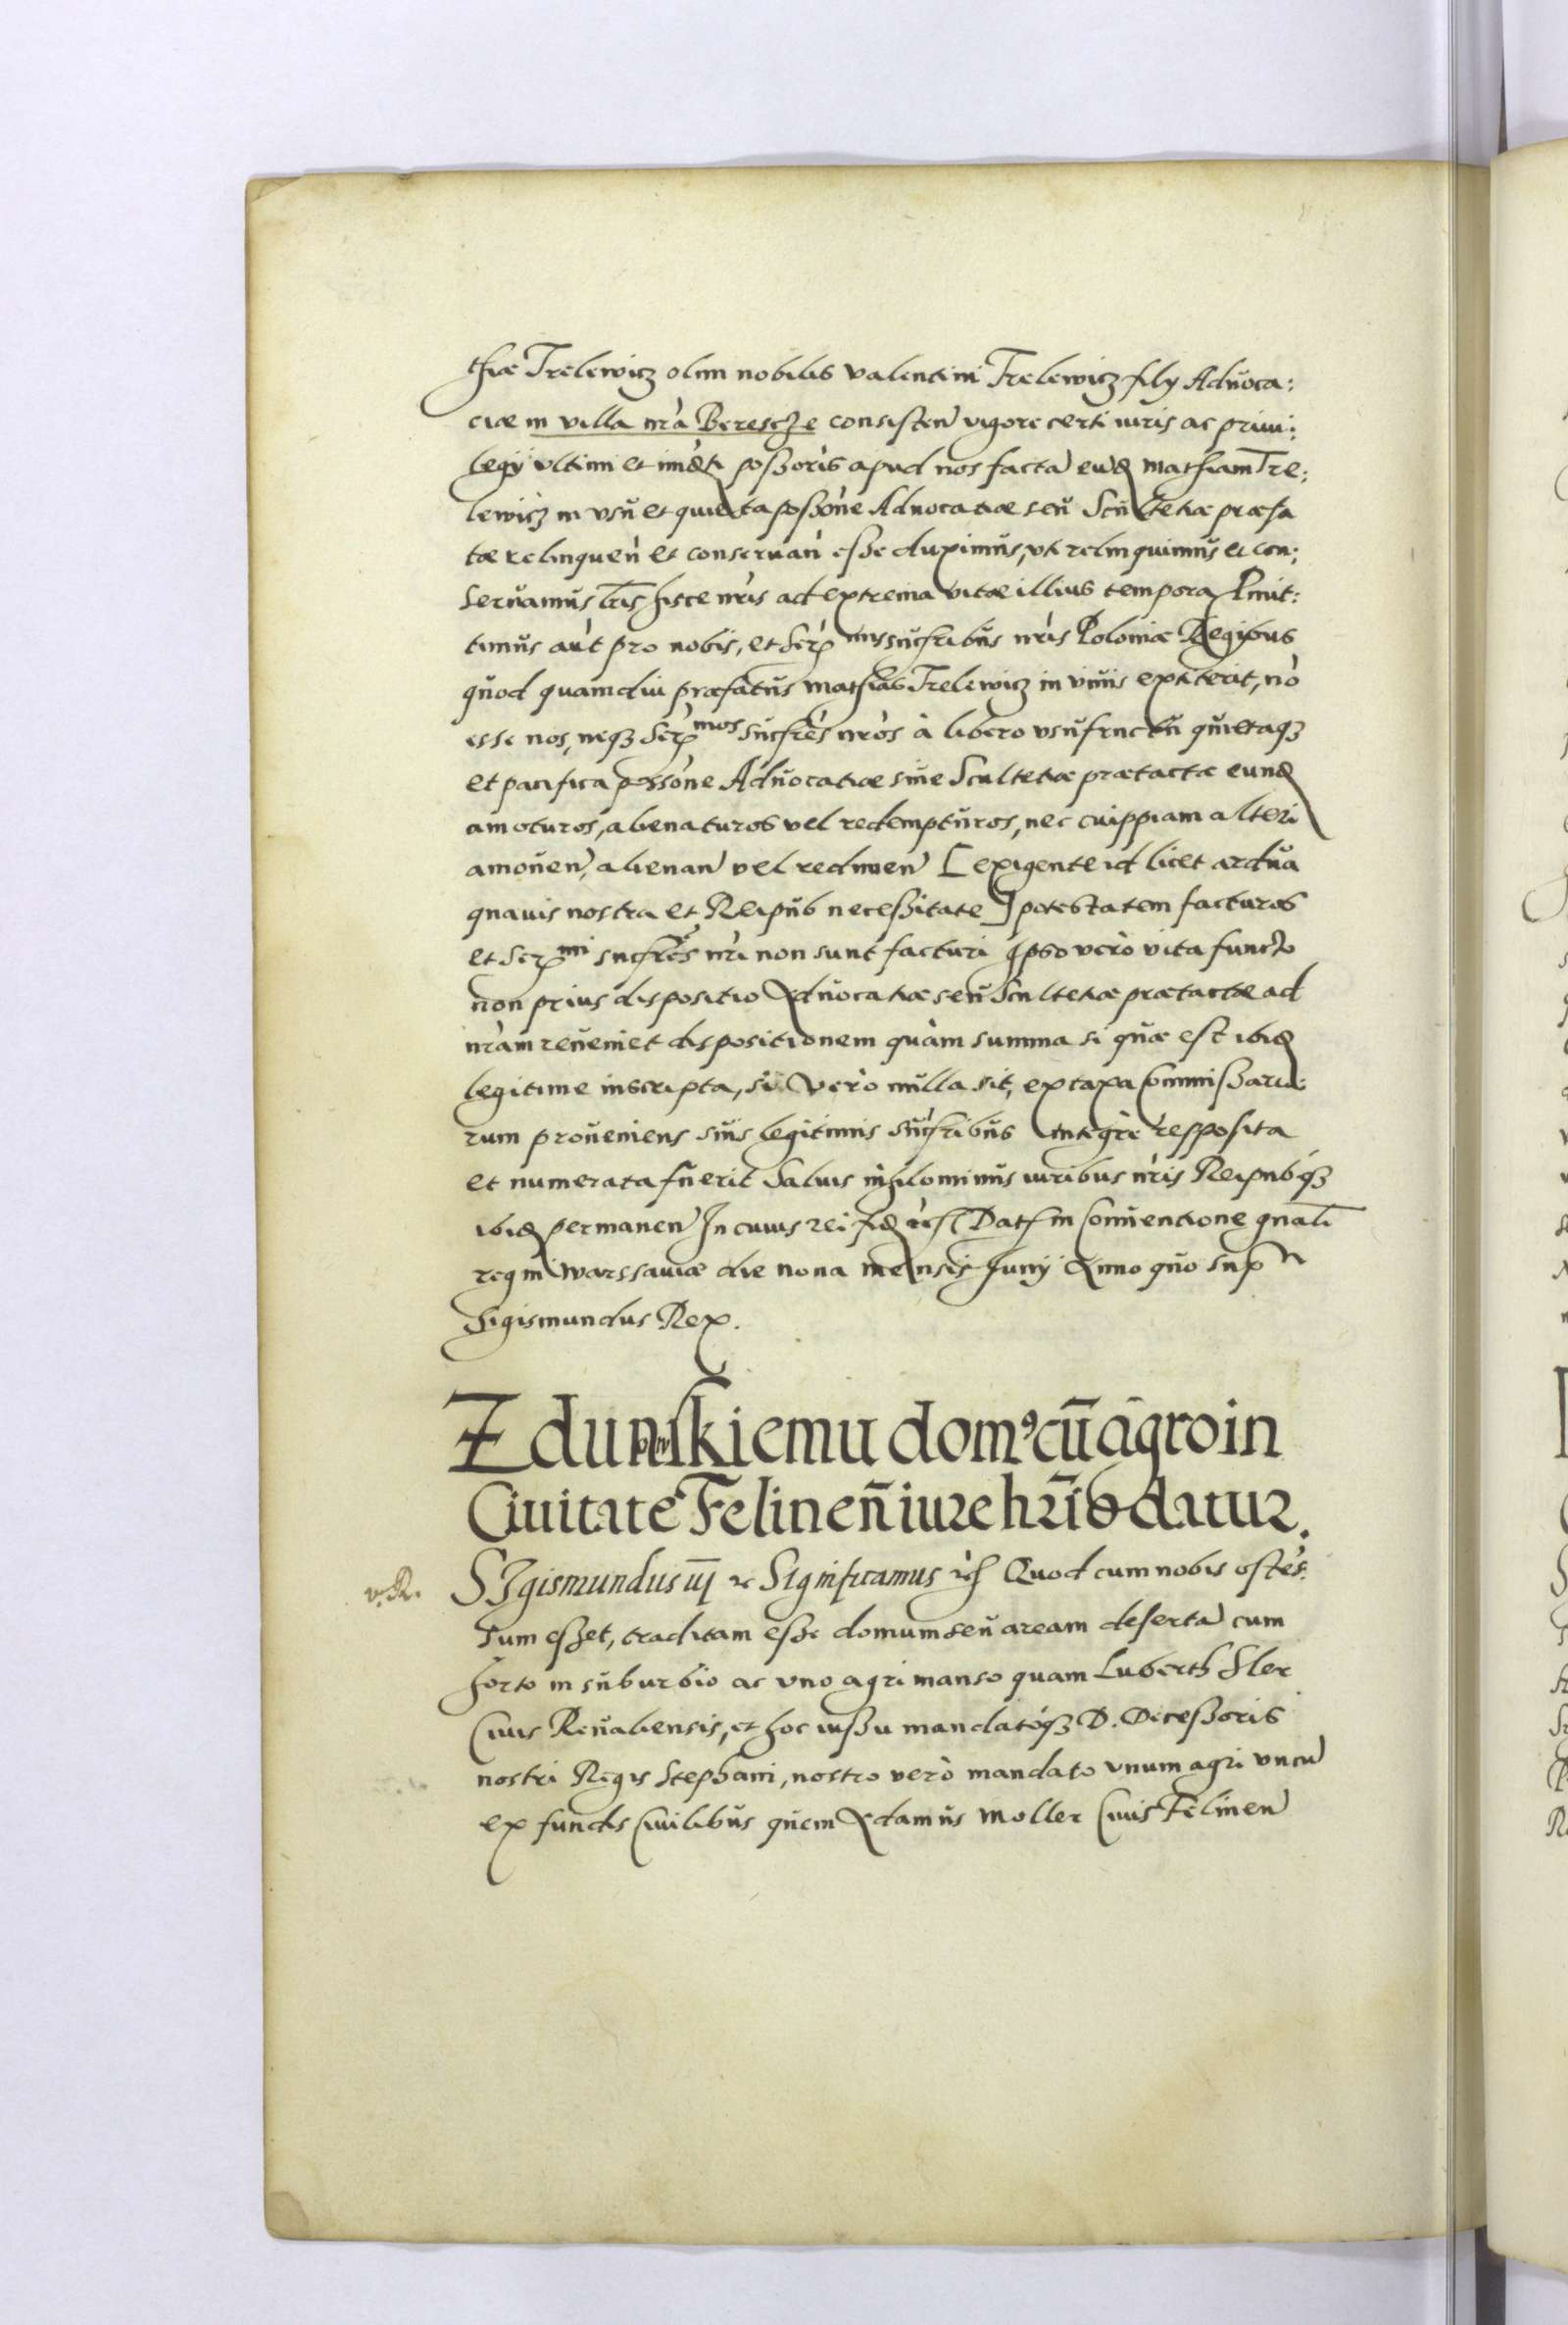 thiæ Trelewicz olim nobilis Valentini Trelewicz filÿ Aduoca:
ciæ in villa nrã Beresche consisteñ vigore certi iuris ac priui:
legÿ vltimi et imẽdti poßoris apud nos factã eund mathiam Tre:
lewicz in vsu et quieta poßone Aduocatiæ seu Scultetiæ præfa
tæ relinqueñ et conseruañ eße duximus, vti relinquimus et con:
seruamus lris hisce nris ad extrema vitæ illius tempora Pmit:
timus aut pro nobis, et Ser mis sucribus nris Poloniæ Regibus
quod quamdiu præfatus mathias Trelewicz in viuis extiterit, nõ
esse nos, neqz Ser mos sucres nros à libero vsufructu quietaqz
et pacifica possone Aduocatiæ siue Scultetiæ prætactæ eund
amoturos, alienaturos vel redempturos, nec cuippiam alteri
amoueñ, alienañ vel redimeñ [ exigente id licet ardua
quauis nostra et Reipub neceßitate ] potestatem facturos
et Ser mi sucres nri non sunt facturi Ipso verò vita functo
non prius dispositio Aduocatiæ seu Scultetiæ prætactæ ad
nram reueniet dispositionem quàm summa si quæ est ibid
legitime inscripta, si verò nulla sit, ex taxa Commißario
rum proueniens suis legitimis sucribus integrè reposita
et numerata fuerit Saluis nihilominus iuribus nris Reipubqz
ibid permaneñ In cuius rei fid rc Dat in Conuentione gnali
regni Warssauiæ die nona mensis Junÿ Anno quo sup
Sigismundus Rex.
Zdunskiemu dom9 cũ agro in
Ciuitate Felineñ iure hrio datur.
v.R.
SIgismundus iij rc Significamus rc Quod cum nobis osteñ:
sum eßet, traditam eße domum seu aream desertã cum
horto in suburbio ac vno agri manso quam Luberth Sler
Ciuis Reualiensis, et hoc iußu mandatoqz D. Deceßoris
nostri Regis Stephani, nostro verò mandato vnum agri vncũ
ex fundis Ciuilibus quem Adamus Moller Ciuis Felineñ